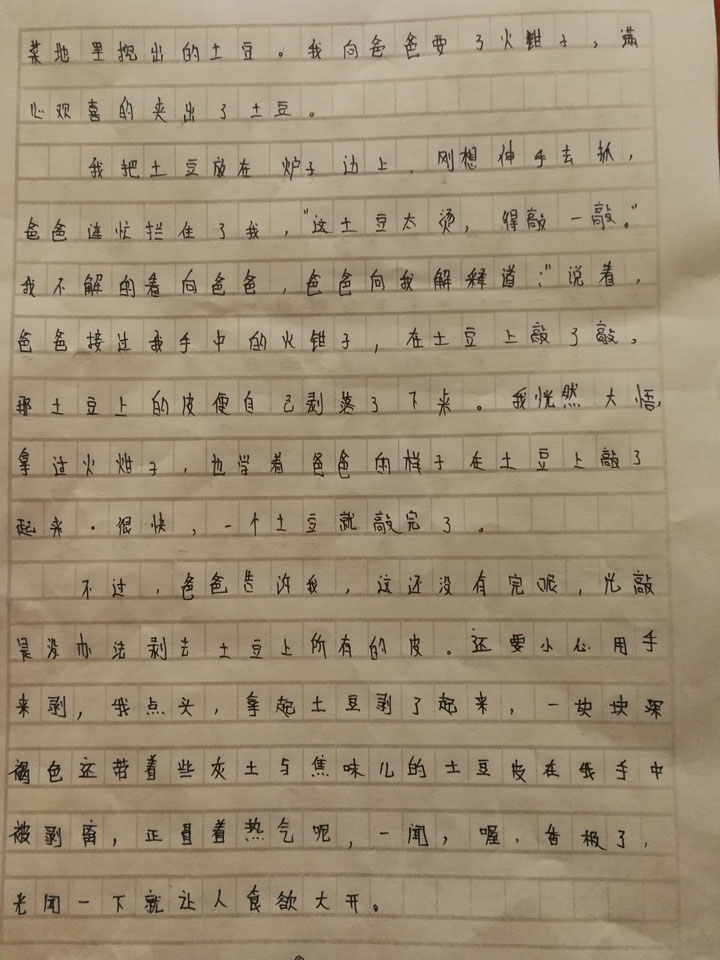 菜地里挖出的土豆。我向爸爸要了火钳子，满
心欢喜的夹出了土豆。
我把土豆放在炉子边上，刚想伸手去抓，
爸爸连忙拦住了我，“这土豆太烫，得敲一敲。”
我不解的看向爸爸，爸爸向我解释道：”说着，
爸爸接过我手中的火钳子，在土豆上敲了敲，
那土豆上的皮便自己剥落了下来。我恍然大悟，
拿过火钳子，也学着爸爸的样子在土豆上敲了
起来。很快，一个土豆就敲完了。
不过，爸爸告诉我，这还没有完呢，光敲
是没办法剥去土豆上所有的皮。还要小心用手
来剥，我点头，拿起土豆剥了起来，一块块深
褐色还带着些灰土与焦味儿的土豆皮在我手中
被剥离，正冒着热气呢，一闻，喔，香极了，
光闻一下就让人食欲大开。